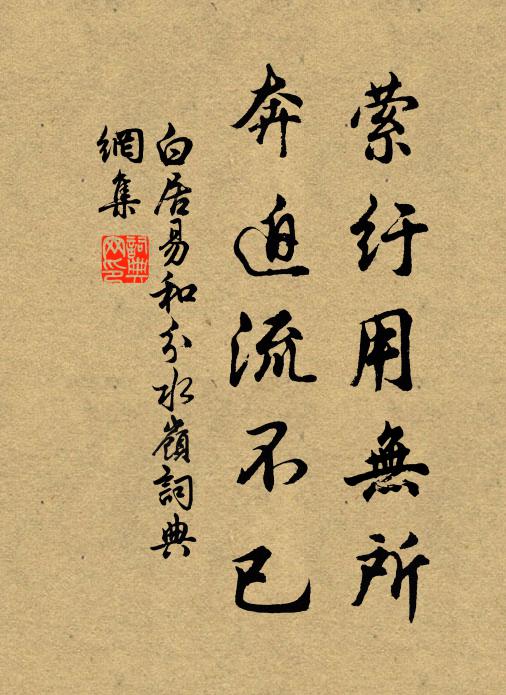 萦纡用無所
奔迫流不已
白居易和分水嶺詞典
網集
詞典
网印